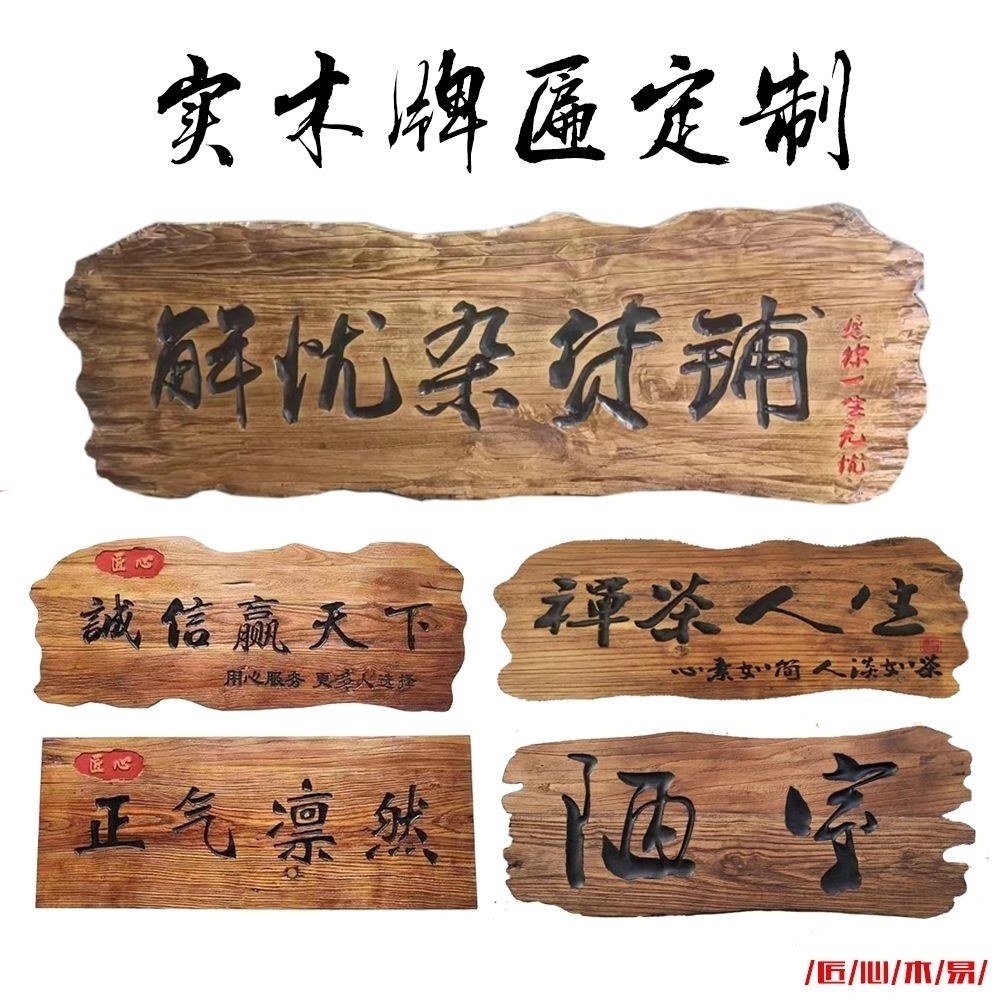 实木牌匾定制
解忧杂货铺
愿你一生无忧
匠心
誠信赢天下
用心服务 更多人选择
禅茶人生
心素如简 人淡如茶
匠心
正气凛然
陋室
/匠/心/木/易/